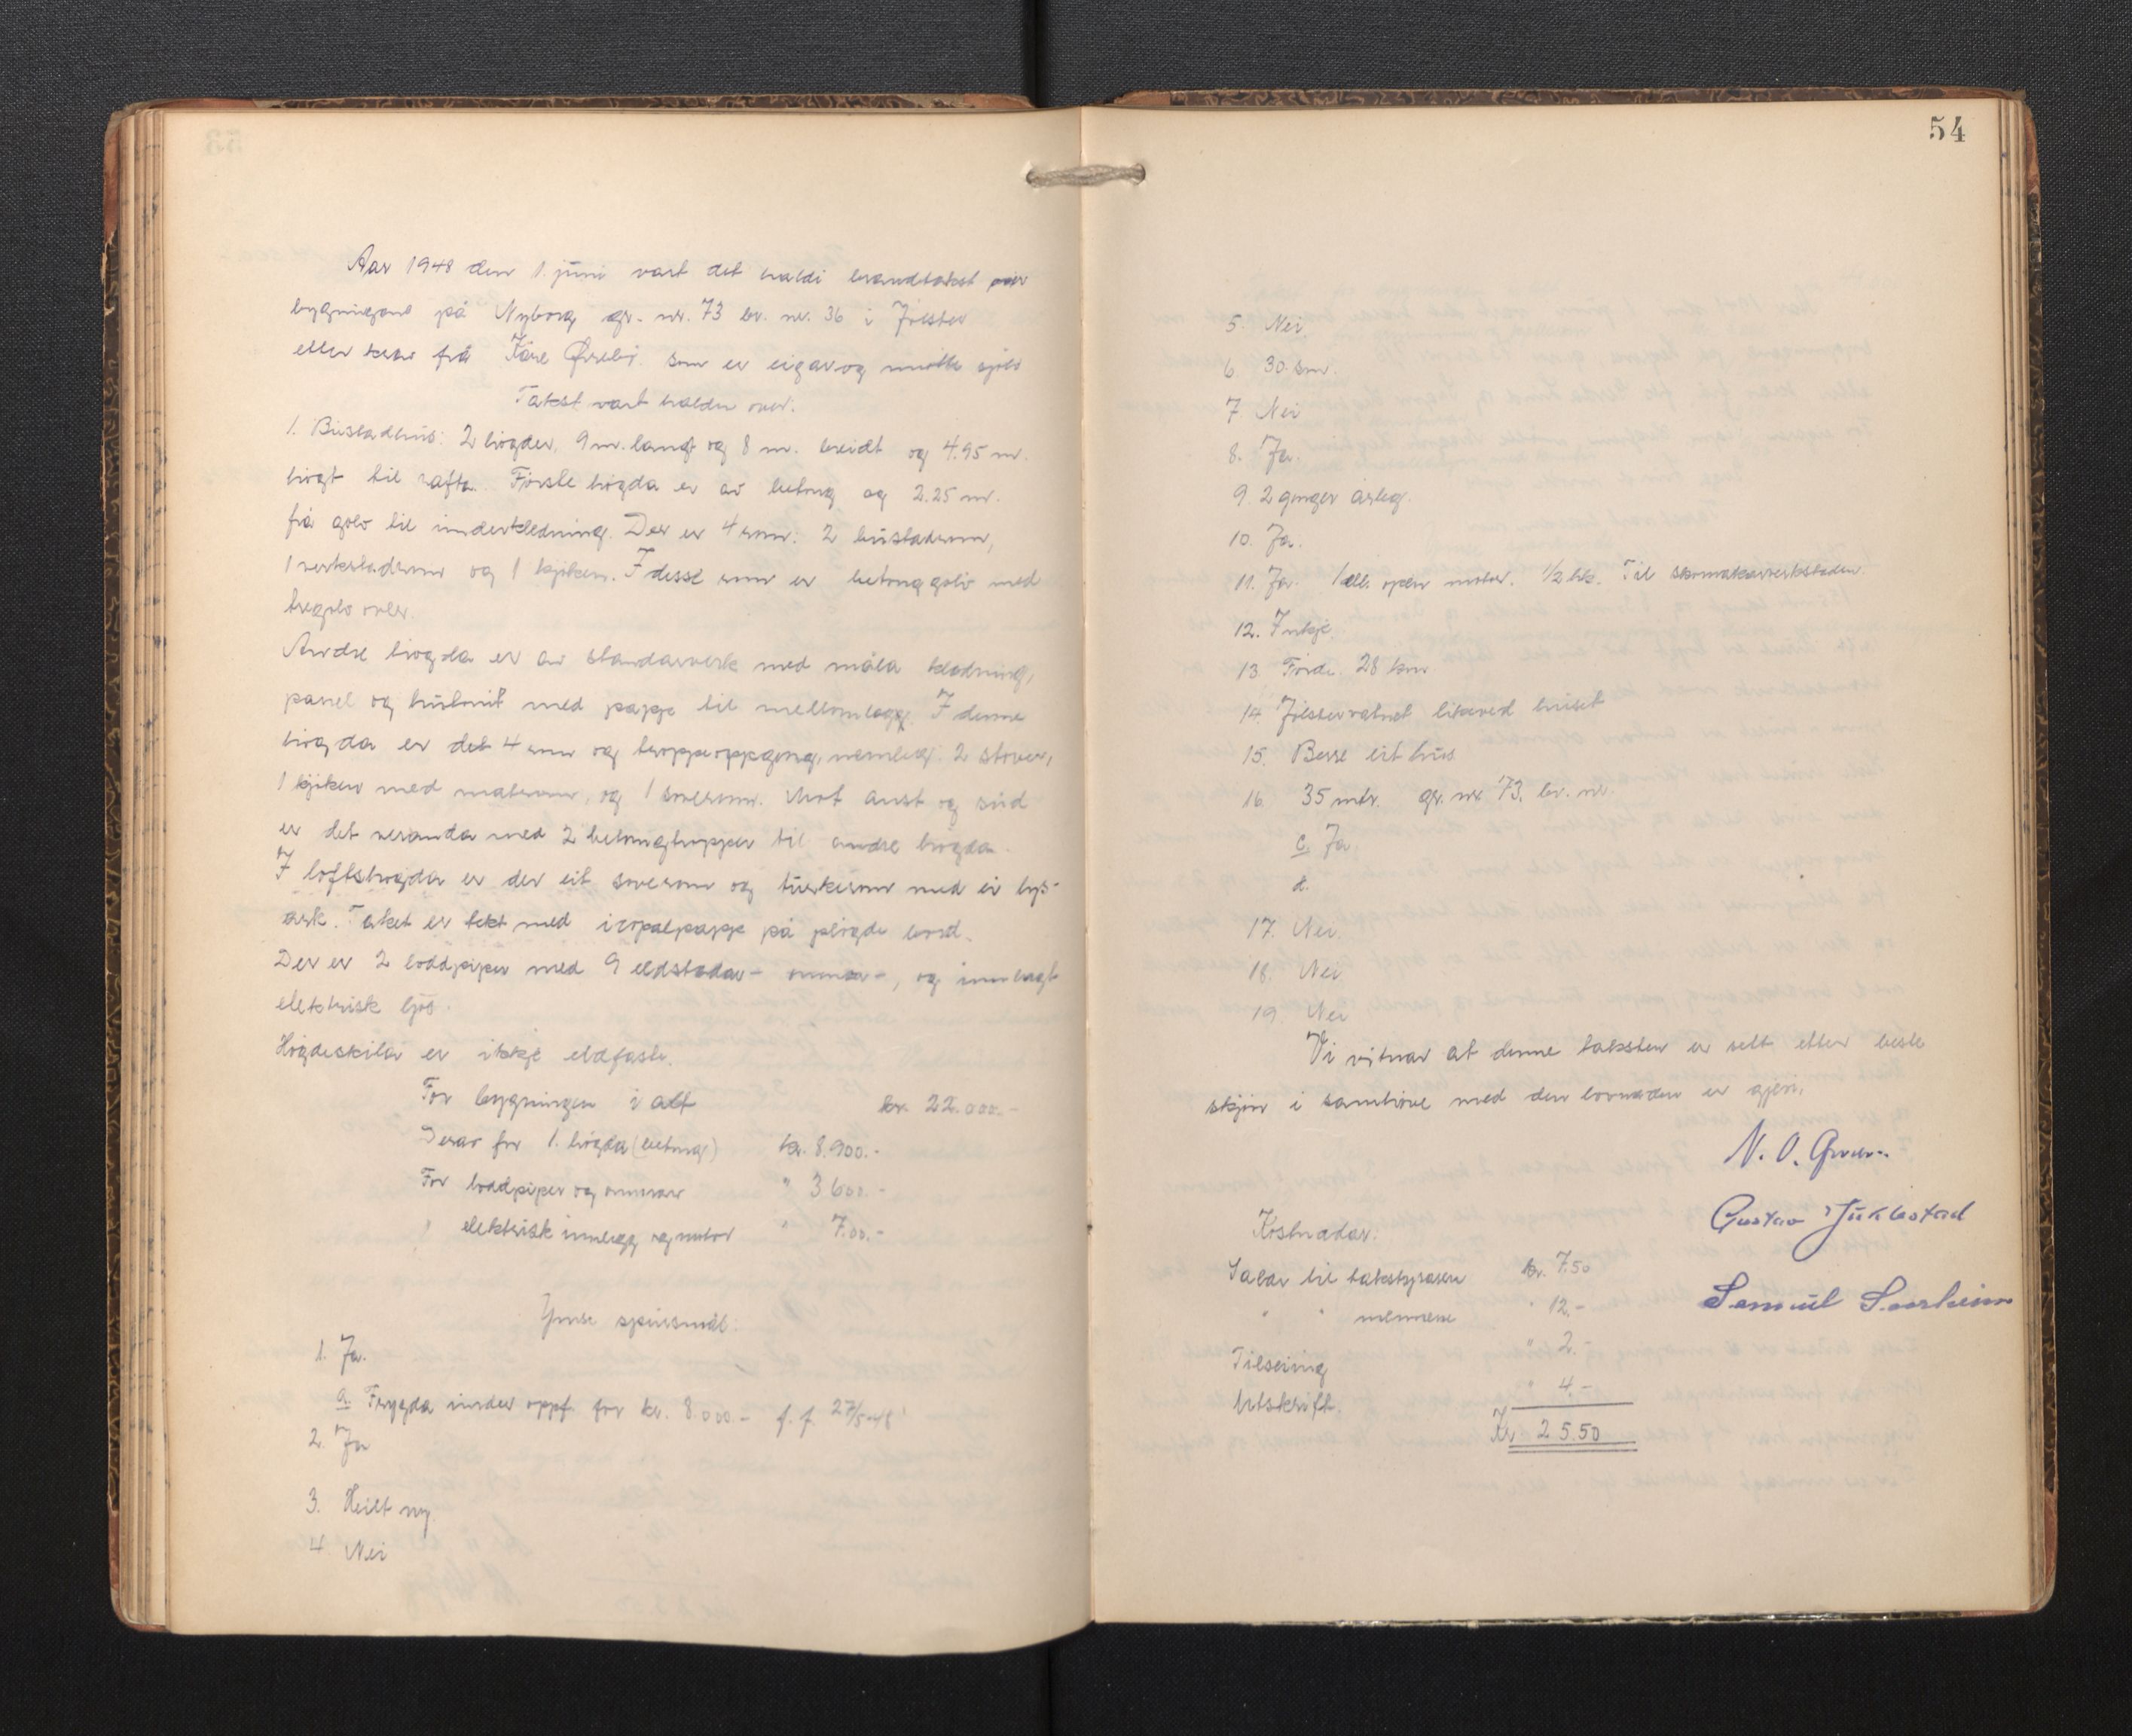 Aar 1948 den 1. juni vart det haldi brandtakst over
bygningane på Nyborg gr. nr. 73 br. nr. 36 i Jølster
etter krav frå Kåre Ørrebø. som er eigar og møtte sjølv
Takst vart halden over:
1. Bustadhus: 2 høgder, 9 m. langt og 8 m. breidt og 4.95 m.
høgt til rafta. Første høgda er av betong og 2.25 m.
frå golv til underkledning. Der er 4 rom: 2 bustadrom,
1 verkstadrom og 1 kjøken. I desse rom er betonggolv med
tregolv over.
Andre høgda er av standarverk med måla kledning,
panel og huntonit med papp til mellomlegg. I denne
høgda er det 4 rom og troppeoppgang, nemleg: 2 stover,
1 kjøken med matrom, og 1 soverom. Mot aust og sud
er det veranda med 2 betongtropper til andre høgda.
I loftshøgda er der eit soverom og turkerom med ei lys-
ark. Taket er tekt med icopalpapp på pløgde bord.
Der er 2 loddpiper med 9 eldstadar - omnar -, og innlagt
elektrisk ljos.
Høgdeskila er ikkje eldfaste.
For bygningen i alt kr. 22.000.-
Derav for 1. høgda (betong) kr. 8.900.-
For loddpiper og omnar " 3600.-
" elektrisk innlegg og motor " 700.-
Ymse spursmål.
1. Ja.
a. Trygda under oppf. for kr. 8.000.- f. f. 27/5-48
2. Ja
3. Heilt ny
4. Nei
54
5. Nei.
6 30 cm.
7. Nei
8. Ja.
9. 2 gonger årleg.
10. Ja.
11. Ja. 1 ell. open motor. 1/2 hk. Til skomakarverkstaden.
12. Inkje.
13. Førde 28 km
14. Jølstervatnet likeved huset
15. Berre eit hus
16. 35 mtr. gr. nr 73. br. nr.
c. Ja.
d.
17. Nei.
18. Nei
19. Nei
Vi vitnar at denne taksten er sett etter beste
skjøn i samhøve med den lovnaden er gjevi.
N. O.
Gustav Juklestad
Samuel
Kostnadar:
Salar til takstgrasen kr. 7.50
" " mennene " 12.-
Tilseiing " 2.-
Utskrift. " 4.-
Kr 25.50